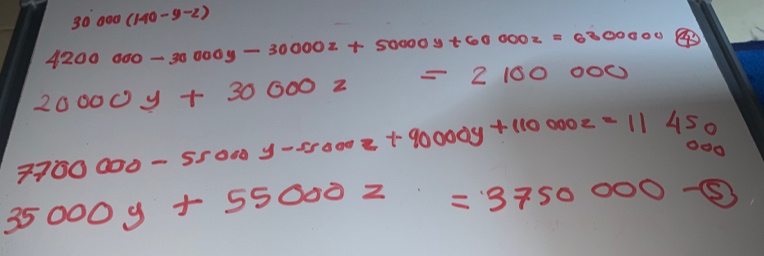 30 000 (140 - y - z)
4200 000 - 30 000y - 30000z + 50000y + 60 000z = 6300000 ④
20000y + 30 000 z = 2 100 000
7700 000 - 55000 y - 55000 z + 90000y + 110 000z = 11 450 000
35 000 y + 55000 z = 3750 000 - ⑤